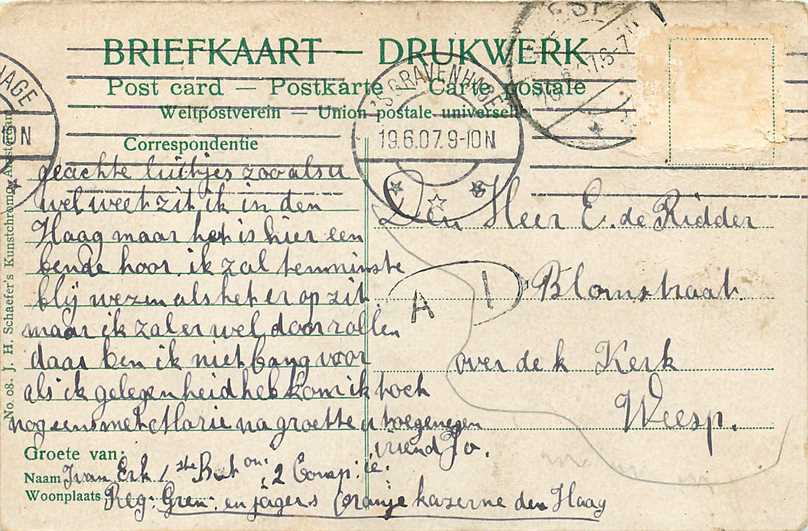 BRIEFKAART — DRUKWERK
Post card — Postkarte — Carte postale
Weltpostverein — Union postale universelle
Correspondentie
'S GRAVENHAGE
19.6.07. 9-10N
HAGE
10N
geachte luitjes zooals u
wel weet zit ik in den
Haag maar het is hier een
bende hoor. ik zal temninste
blij wezen als het er op zit
maar ik zal er wel doorrollen
daar ben ik niet bang voor
als ik gelegenheid heb kom ik toch
nog eens met Marie na groette u toegenegen
vriend Jo.
Groete van:
Naam J van Erk 1ste Bat on: 2 Comp. ie.
Woonplaats Reg: Gren: en jagers Oranje kazerne den Haag
Den Heer E. de Ridder
Blomstraat
over de k Kerk
Weesp.
A 1
No. 08. J. H. Schaefer's Kunstchromo, Amsterdam